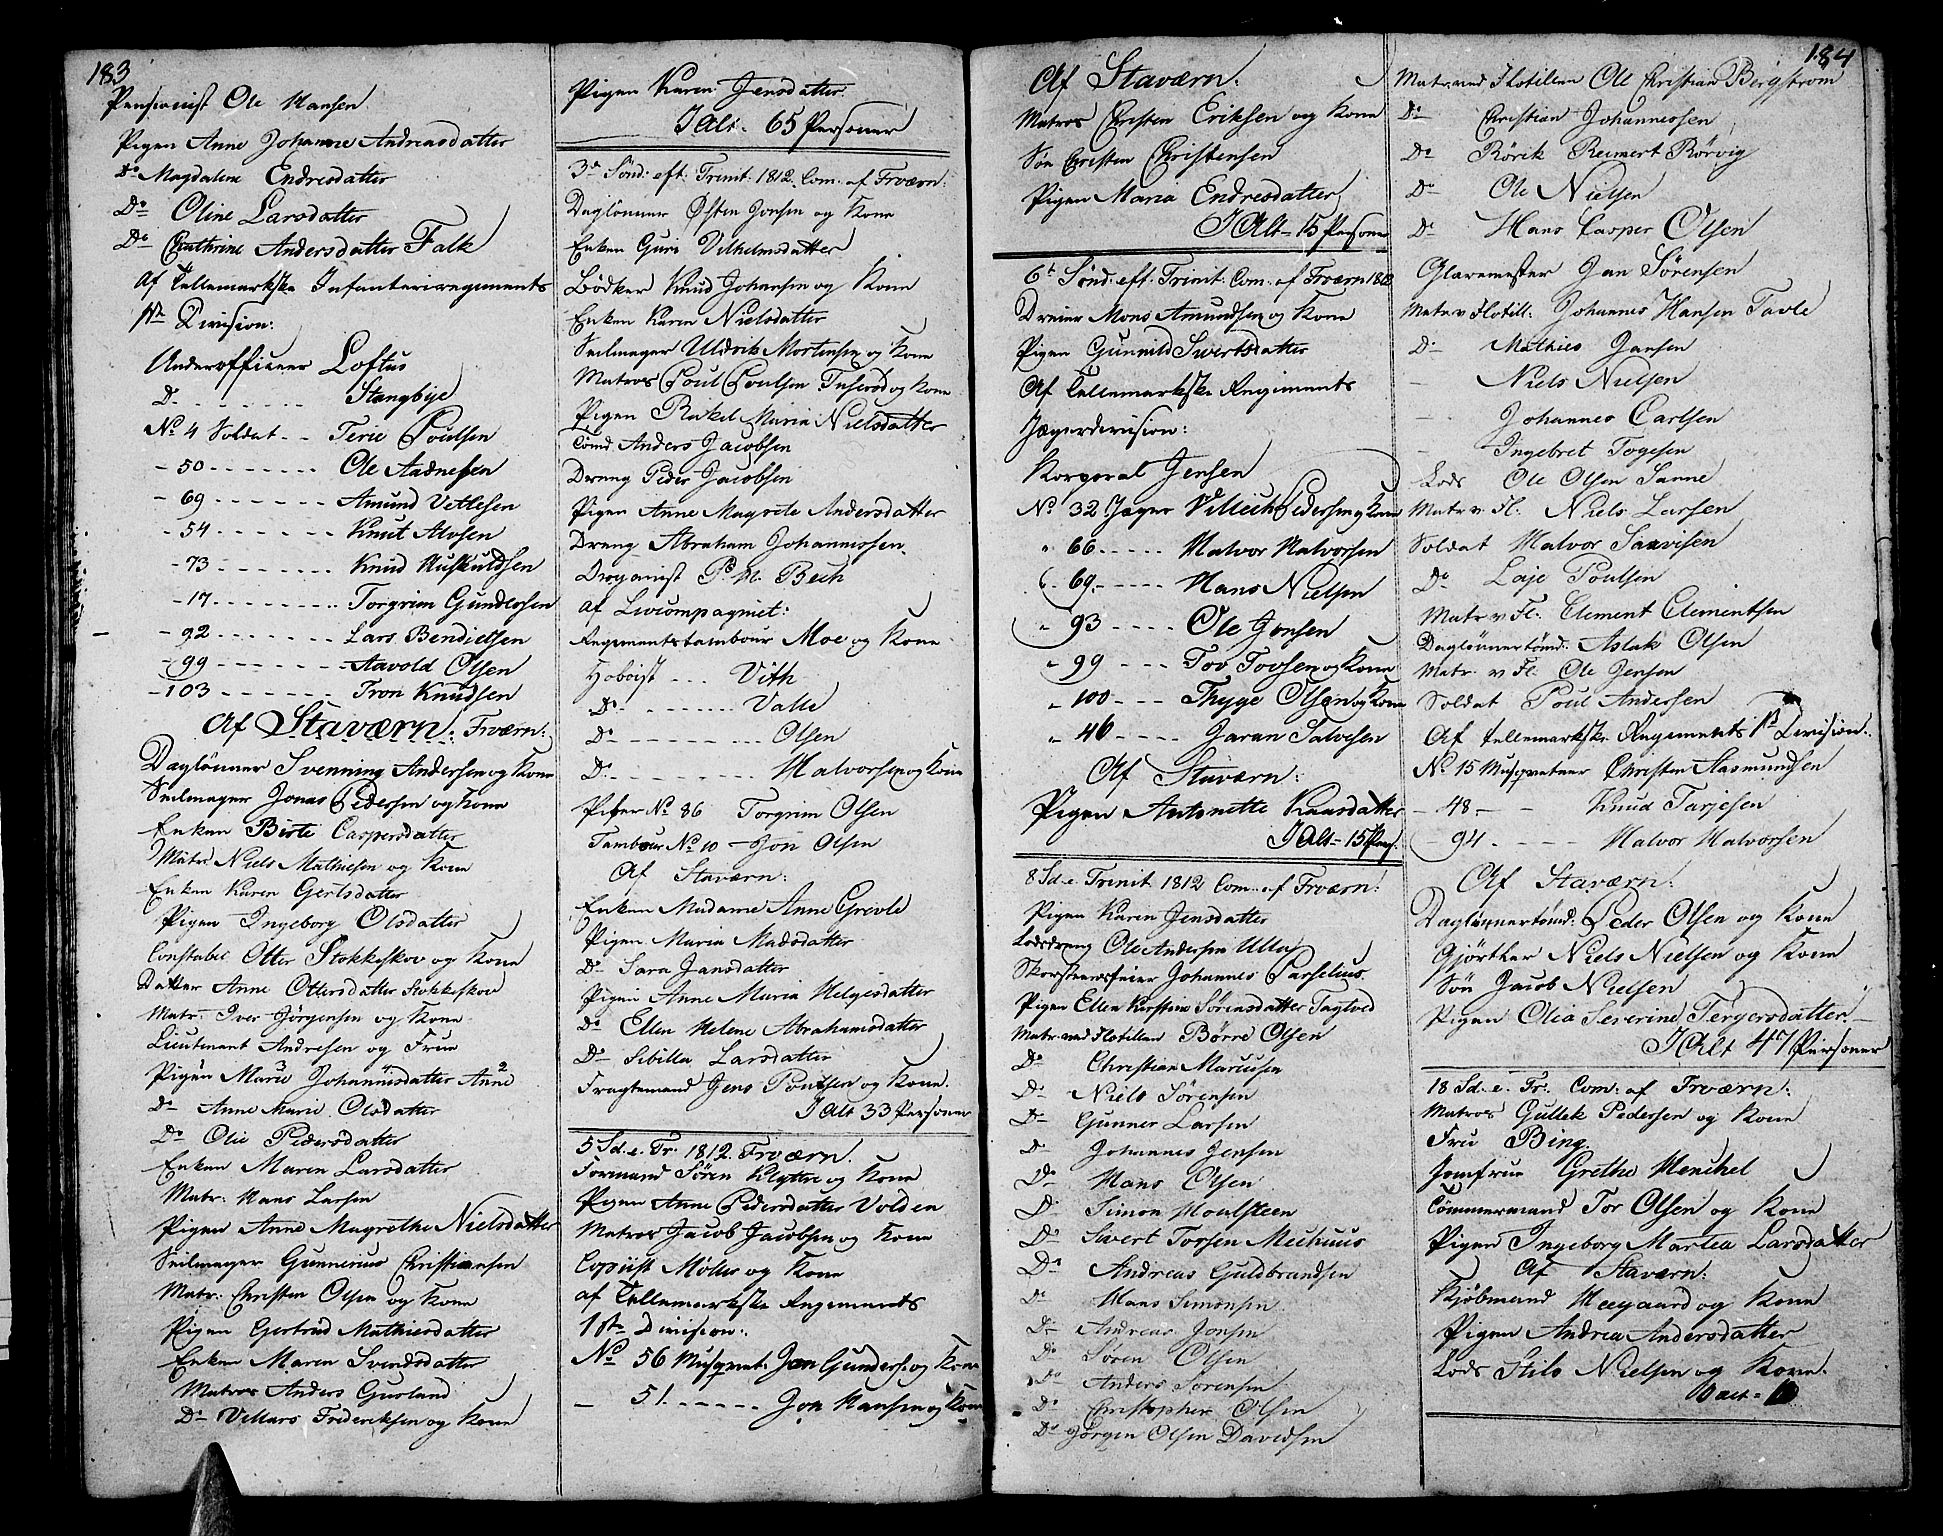 183
Pensionist Ole Hansen
Pigen Anne Johanne Andreasdatter
Do Magdalene Endresdatter
Do Oline Larsdatter
Do Cathrine Andersdatter Falk
Af Tellemarkske Infanteriregiments
1ste Division:
Underofficeer Loftus
Do - - - Stangbye
No 4 Soldat - - Terie Poulsen
- 50 - - - Ole Aadnesen
- 69 - - - Amund Vetlesen
- 54 - - - Knut Alvsen
- 73 - - - Knud Huskuldsen
- 17 - - - Torgrim Gundersen
- 92 - - - Lars Bendictsen
- 99 - - - Aavold Olsen
- 103 - - - Tron Knudsen
Af Staværn: Frværn:
Daglönner Svenning Andersen og Kone
Seilmager Jonas Pedersen og Kone
Enken Birte Caspersdatter
Matr: Niels Mathiesen og Kone
Enken Karen Gertsdatter
Pigen Ingeborg Olsdatter
Constabel Otter Stokkeskov og Kone
Datter Anne Ottersdatter Stokkeskov
Matr: Iver Jörgensen og Kone
Lieutenant Andresen og Frue
Pigen Marie Johannesdatter Anne
Do Anne Marie Olsdatter
Do Olie Pedersdatter
Enken Maren Larsdatter
Matr: Hans Larsen
Pigen Anne Magrethe Nielsdatter
Seilmager Gunnerius Christiansen
Matr: Christen Olsen og Kone
Pigen Gertrud Mathiesdatter
Enken Maren Svendsdatter
Matros Anders Gusland
Do Villars Frideriksen og Kone
Pigen Karen Jensdatter
I Alt - 65 Personer
3de Sönd: eft: Trinit: 1812. Com: af Frværn:
Daglönner Östen Jonsen og Kone
Enken Guri Vilhelmsdatter
Bödker Knud Johansen og Kone
Enken Karen Nielsdatter
Seilmager Uldrik Mortensen og Kone
Matros Poul Poulsen og Kone
Pigen Rakel Maria Nielsdatter
Tömd Anders Jacobsen
Dreng Peder Jacobsen
Pigen Anne Magrete Andersdatter
Dreng Abraham Johannessen
P. H. Bech
Af Livcompagniet:
Regimentstambour Moe og Kone
Hoboist - - - Vith
Do - - - Valle
Do - - - Olsen
Do - - - Halvorsen og Kone
Piber No 86 Torgrim Olsen
Tambour No 10 - Jon Olsen
Af Staværn:
Enken Madame Anne Grevle
Pigen Maria Madsdatter
Do Sara Jansdatter
Pigen Anne Maria Helgesdatter
Do Ellen Helene Abrahamsdatter
Do Sibilla Larsdatter
Fragtemand Jens Poulsen og Kone.
I Alt 33 Personer
5 Sd. e. Tr. 1812. Frværn.
Formand Sören Klyttre og Kone
Pigen Anne Pedersdatter Volden
Matros Jacob Jacobsen og Kone
Copiist Möller og Kone
af Tellemarkske Regiments
1ste Division:
No 56 Musquet: Jon Gunders: og Kone
- 51. - - - Jon Hansen og Kone
184
Af Staværn:
Matros Christen Eriksen og Kone
Sön Christen Christensen
Pigen Maria Endresdatter
I Alt - 15 Personer
6te Sönd: eft: Trinit: Com: af Frværn 1812
Dreier Mons Amundsen og Kone
Pigen Gunnild Siwertsdatter
Af Tellemarkske Regiments
Jægerdivision:
Korporal Jensen
No 32 Jæger Villich Pedersen og Kone
" 66 - - - Halvor Halvorsen
" 69 - - - Hans Nielsen
" 93 - - - Ole Jensen
" 99 - - - Tov Tovsen og Kone
" 100 - - - Thyge Olsen og Kone
" 46 - - - Jaran Salvesen
Af Staværn:
Pigen Antonette Klausdatter
I Alt - 15 Pers:
8 Sd. e. Trinit 1812 Com: af Frværn:
Pigen Karen Jensdatter
Lodsdreng Ole Andersen Ulla
Skorsteensfeier Johannes Parselius
Pigen Ellen Kirstine Sörensdatter Tagtved
Matr. ved Flotillen Börre Olsen
Do Christian Marcusen
Do Niels Sörensen
Do Gunner Larsen
Do Johannes Jensen
Do Hans Olsen
Do Simon Houlsteen
Do Sivert Torsen
Do Andreas Guldbrandsen
Do Hans Simonsen
Do Andreas Jonsen
Do Sören Olsen
Do Anders Sörensen
Do Christopher Olsen
Do Jörgen Olsen Davidsen
Matr. ved Flotillen Ole Christian Bergström
Do Christian Johannessen
Do Rörik Reimert Rörvig
Do Ole Nielsen
Do Hans Casper Olsen
Glarmester Jan Sörensen
Matr. v Flotill: Johannes Hansen Tavle
Do Mathies Jansen
- Niels Nielsen
- Johannes Carlsen
- Ingebret Togesen
Lods Ole Olsen Sanne
Matr. v. Fl. Niels Larsen
Soldat Halvor Saavesen
Do Loje Poulsen
Matr v Fl: Clement Clementsen
Daglönnertömd: Aslak Olsen
Matr. v Fl: Ole Jensen
Soldat Poul Andersen
Af tellemarkske Regiments 1ste Division:
No 15 Musqueteer Christen Aasmundsen
- 48 - - Knud Tarjesen
- 94 - - - Halvor Halvorsen
Af Staværn:
Daglönnertömd: Peder Olsen og Kone
Gjörtler Niels Nielsen og Kone
Sön Jacob Nielsen
Pigen Olia Severine Tergersdatter
I Alt 47 Personer
18 Sd. e. Tr: Com: af Frværn:
Matros Gullek Pedersen og Kone
Fru Bing.
Jomfrue Grethe Henchel
Tömmermand Tor Olsen og Kone
Pigen Ingeborg Martea Larsdatter
Af Staværn:
Kjöbmand Heegaard og Kone
Pigen Andrea Andersdatter
Lods Nielsen og Kone.